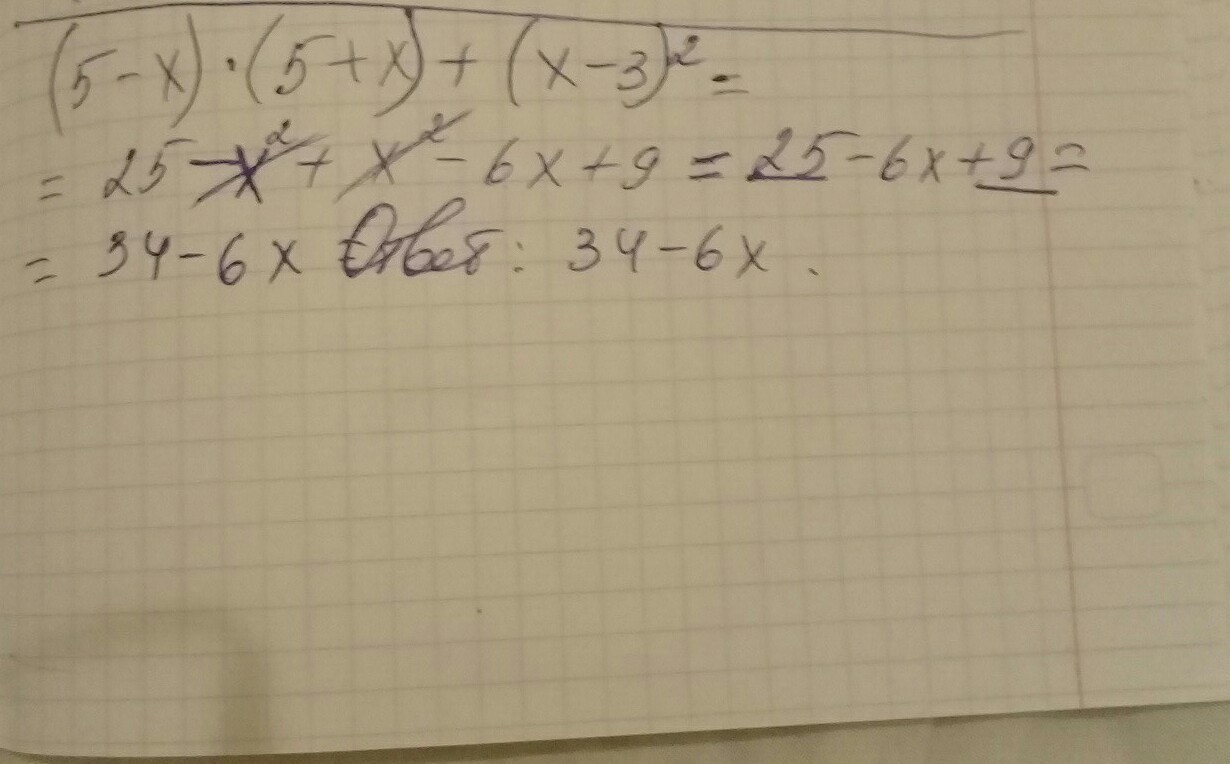 (5-x)·(5+x)+(x-3)²=
= 25-x²+x²-6x+9=25-6x+9=
= 34-6x Ответ: 34-6x.